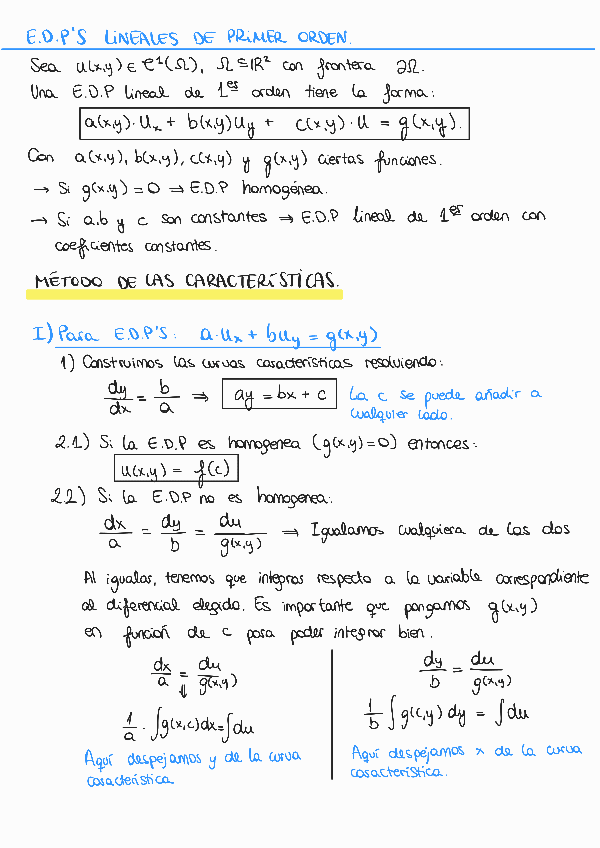 E.D.P'S LINEALES DE PRIMER ORDEN.
Sea u(x,y) ∈ C¹(Ω), Ω ⊆ ℝ² con frontera ∂Ω.
Una E.D.P lineal de 1er orden tiene la forma:
a(x,y)·Ux + b(x,y)Uy + c(x,y)·U = g(x,y).
Con a(x,y), b(x,y), c(x,y) y g(x,y) ciertas funciones.
→ Si g(x,y) = 0 ⇒ E.D.P homogénea.
→ Si a,b y c son constantes ⇒ E.D.P lineal de 1er orden con
coeficientes constantes.
MÉTODO DE LAS CARACTERÍSTICAS.
I) Para E.D.P'S: a·ux + buy = g(x,y)
1) Construimos las curvas características resolviendo:
dy/dx = b/a ⇒ ay = bx + c La c se puede añadir a
cualquier lado.
2.1) Si la E.D.P es homogenea (g(x,y)=0) entonces:
u(x,y) = f(c)
2.2) Si la E.D.P no es homogenea:
dx/a = dy/b = du/g(x,y) ⇒ Igualamos cualquiera de las dos
Al igualar, tenemos que integrar respecto a la variable correspondiente
al diferencial elegido. Es importante que pongamos g(x,y)
en función de c para poder integrar bien.
dx/a = du/g(x,y)
⇓
1/a · ∫g(x,c)dx = ∫du
Aquí despejamos y de la curva
característica
dy/b = du/g(x,y)
1/b ∫g(c,y) dy = ∫du
Aquí despejamos x de la curva
característica.